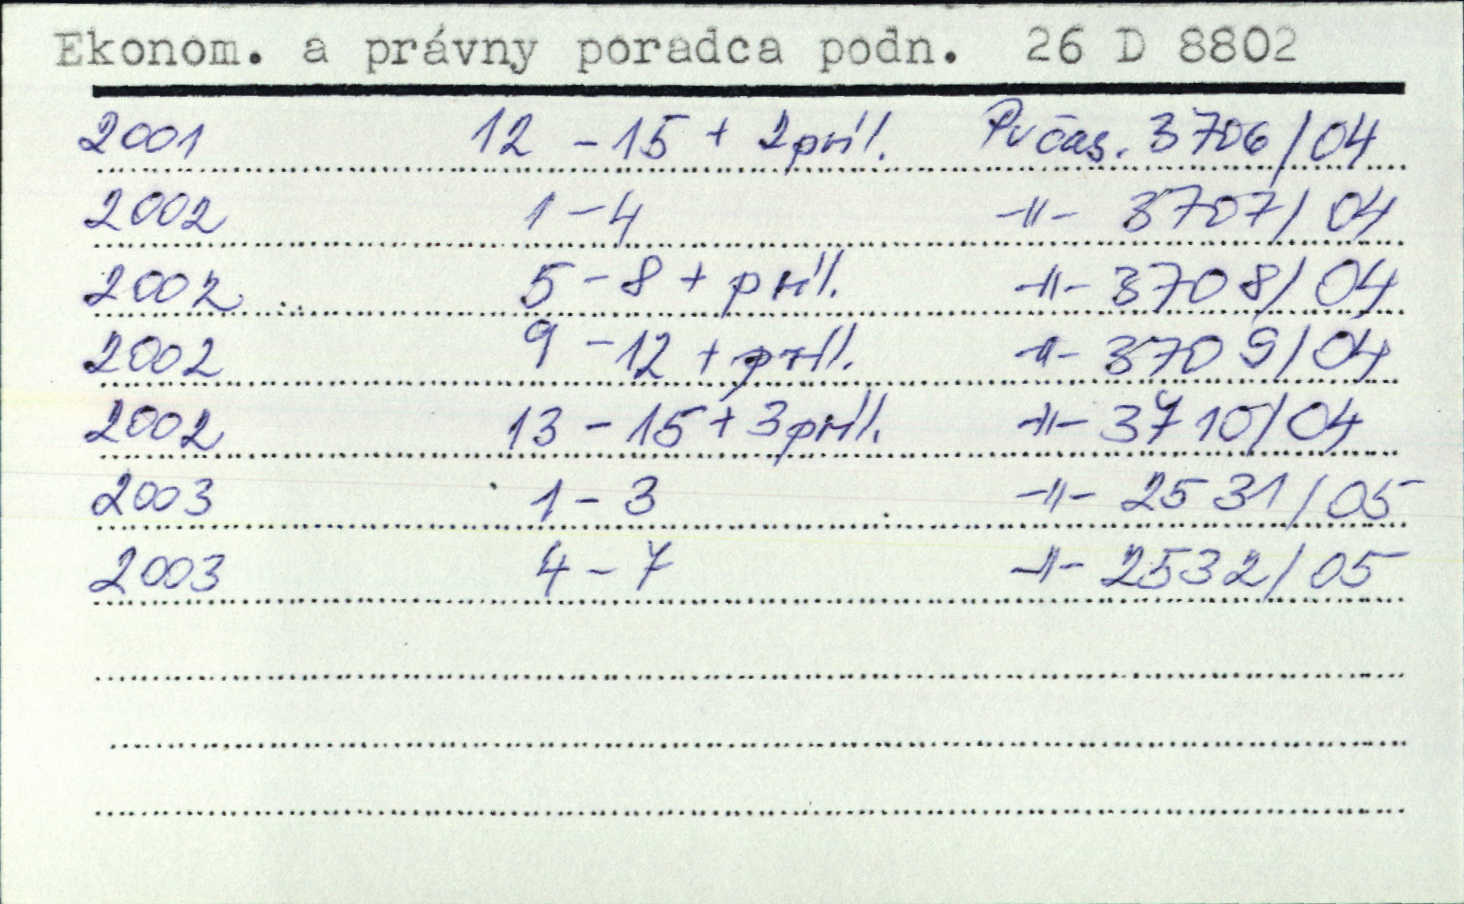 Ekonom. a právny poradca podn. 26 D 8802
2001 12 - 15 + 2 príl. Pv čas. 3706/04
2002 1 - 4 -"- 3707/04
2002 5 - 8 + príl. -"- 3708/04
2002 9 - 12 + príl. -"- 3709/04
2002 13 - 15 + 3 príl. -"- 3710/04
2003 1 - 3 -"- 2531/05
2003 4 - 7 -"- 2532/05